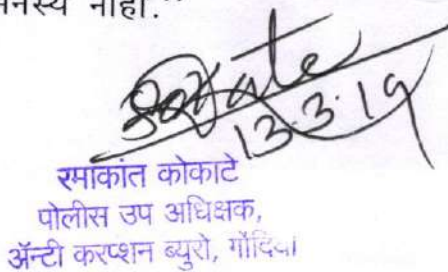 नाही.
13.3.19
रमाकांत कोकाटे
पोलीस उप अधिक्षक,
ॲन्टी करप्शन ब्युरो, गोंदिया